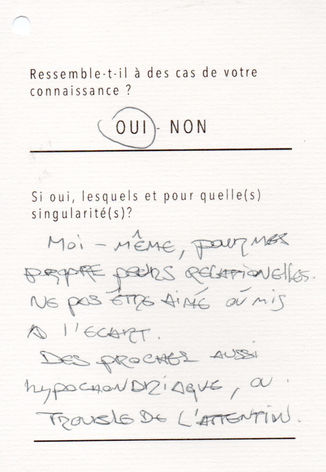 Ressemble-t-il à des cas de votre
connaissance ?
OUI - NON
Si oui, lesquels et pour quelle(s)
singularité(s)?
Moi - même, pour mes
propre peurs relationelles.
Ne pas être aimé où mis
à l'écart.
Des proches aussi
hypochondriaque, ou
trouble de l'attention.